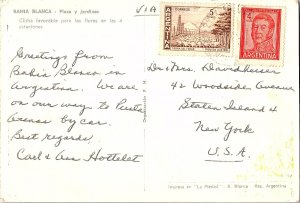 BAHIA BLANCA - Plaza y Jardines
Clima favorable para las flores en las 4
estaciones
VIA
Greetings from
Bahia Blanca in
Argentina. We are
on our way to Punta
Arenas by car.
Best regards,
Carl & Ann Hottelet
Dr & Mrs. David Heiser
42 Woodside Avenue
Staten Island 4
New York
U.S.A.
5
ARGENTINA
Impreso en "La Piedad" - B. Blanca - Rep. Argentina